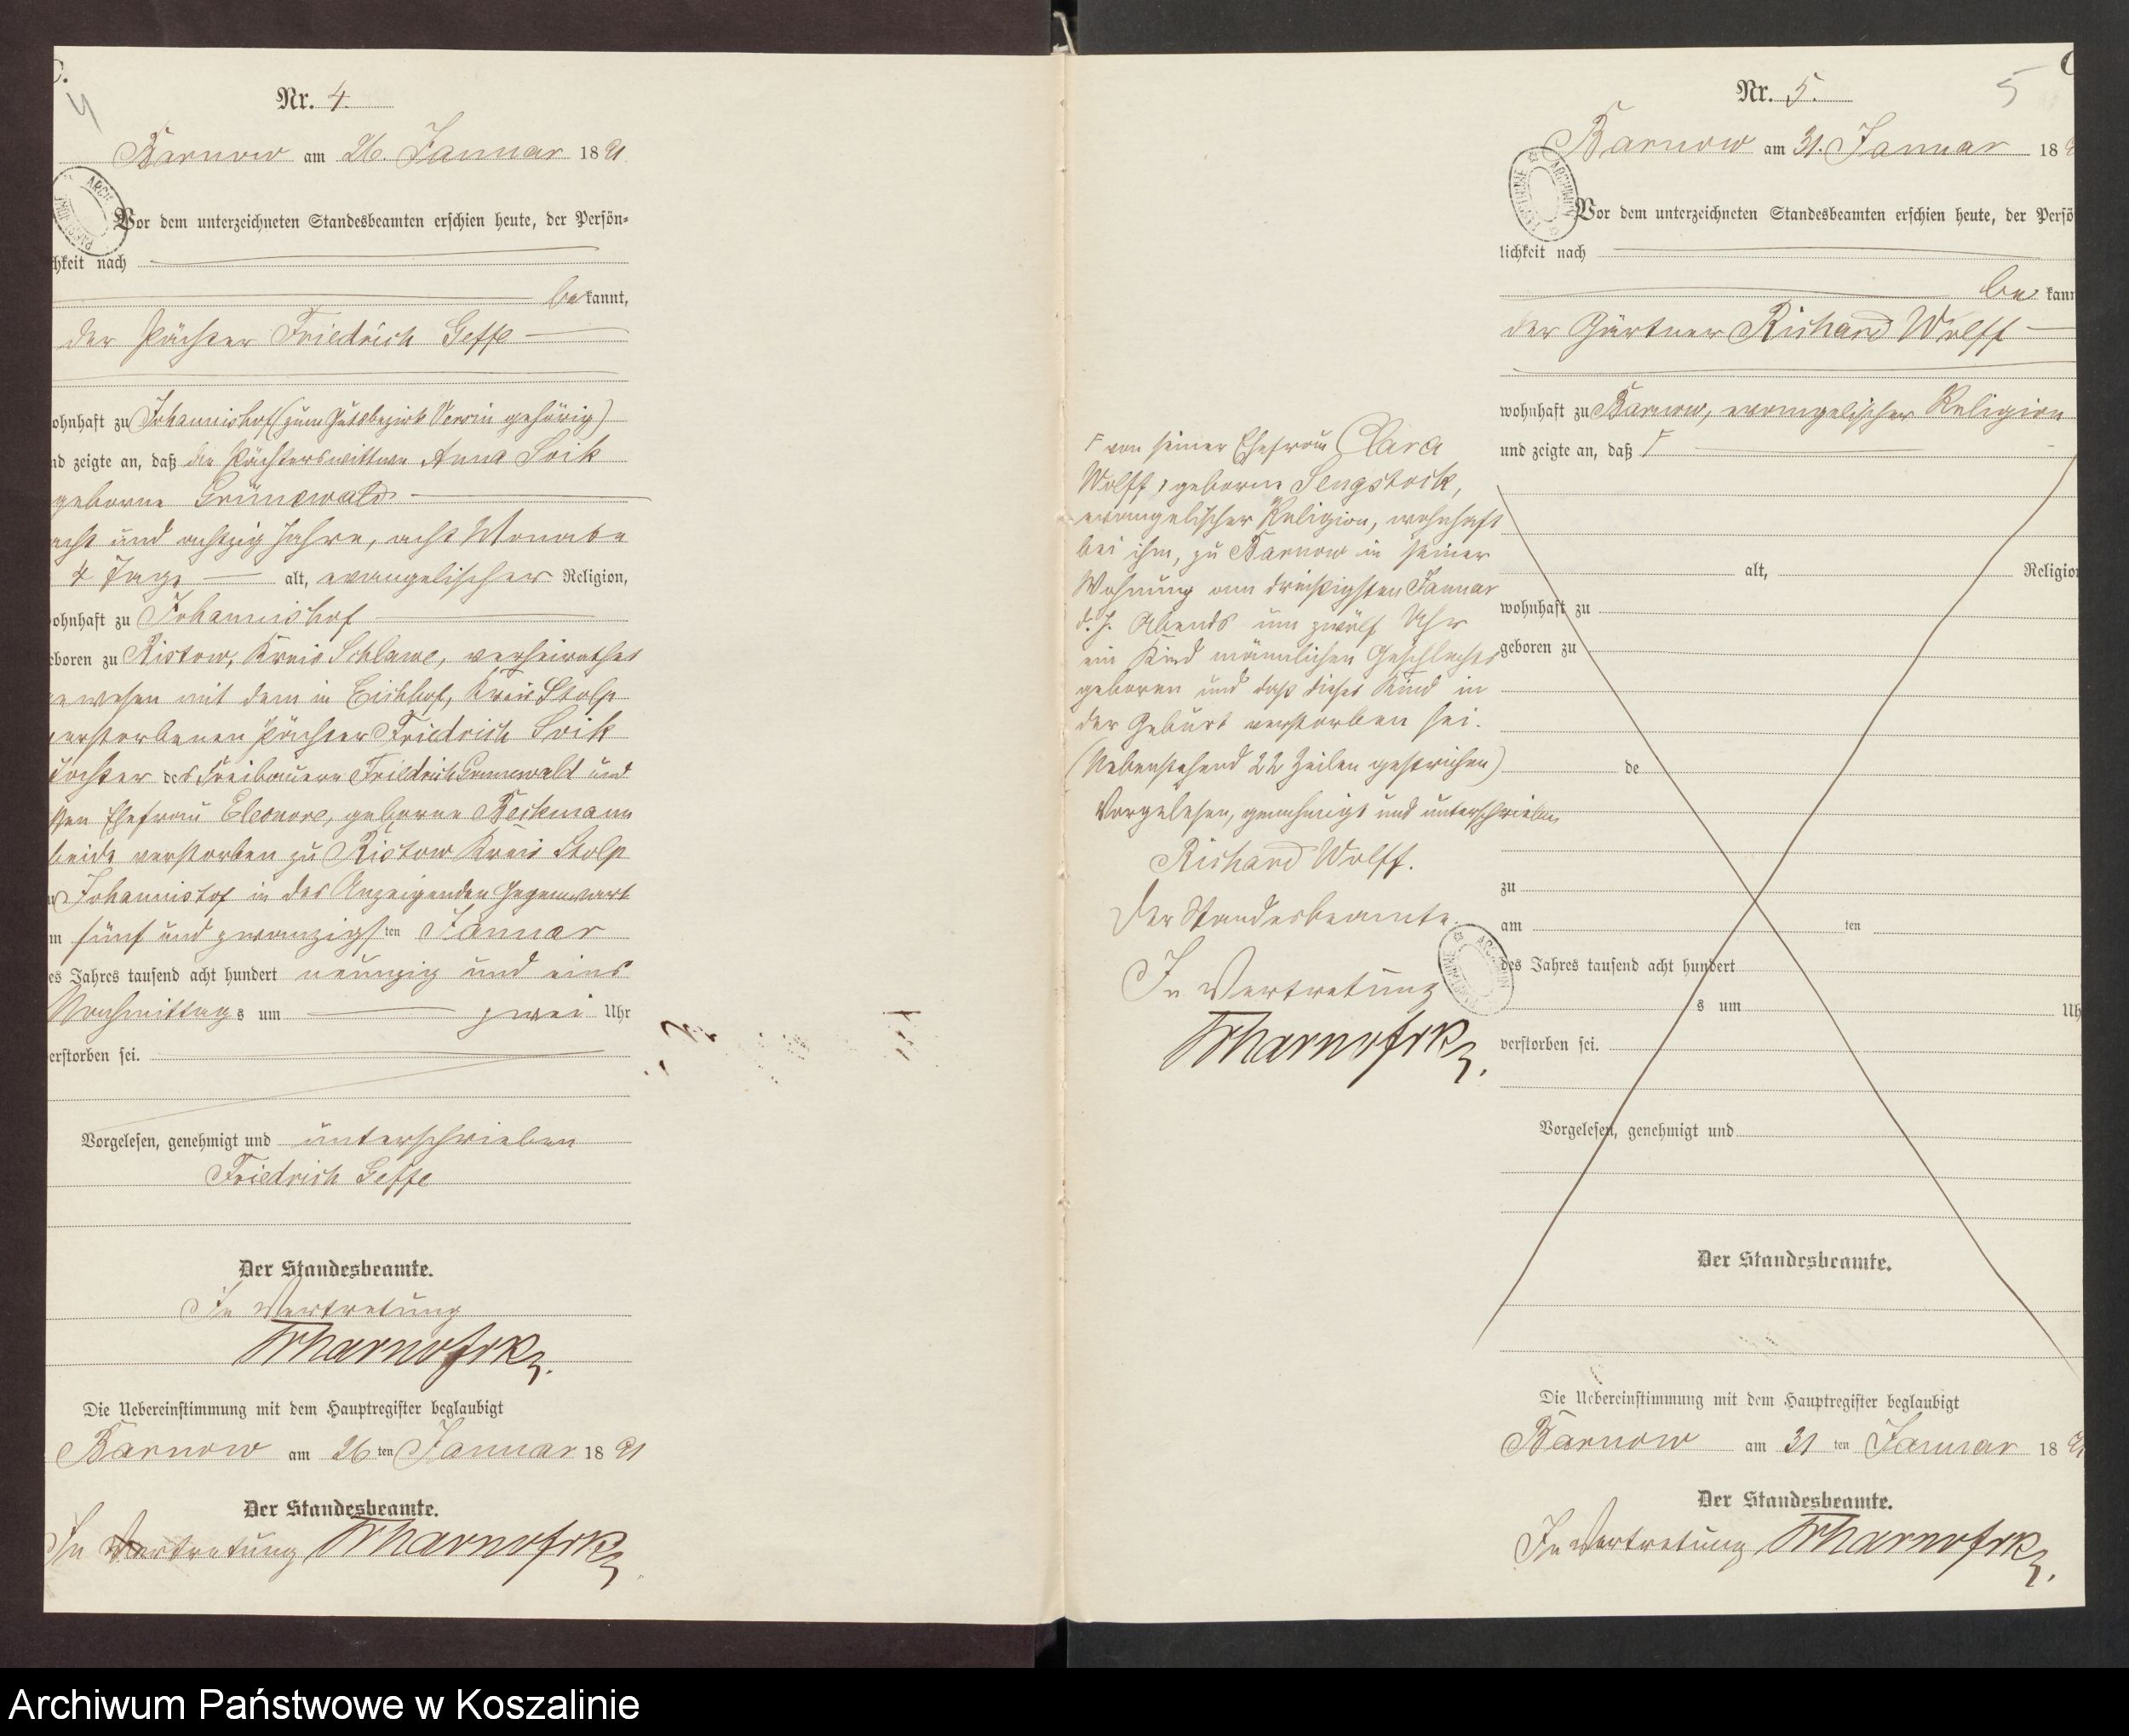 C.
4
Nr. 4.
Barnow am 26. Januar 1891
Vor dem unterzeichneten Standesbeamten erschien heute, der Persön=
hkeit nach
be kannt,
der Pächter Friedrich Geffe
ohnhaft zu Johannishof (zum Gutsbezirk gehörig)
nd zeigte an, daß die Pächterswittwe Anna Loik
geborne Grünewald
acht und achtzig Jahre, acht Monate
4 Tage alt, evangelischer Religion,
ohnhaft zu Johannishof
eboren zu Ristow, Kreis Schlawe, verheirathet
gewesen mit dem in Eichhof, Kreis Stolp
verstorbenen Pächter Friedrich Loik
Tochter des Freibauern Friedrich Grunewald und
ssen Ehefrau Eleonore, geborne Beckmann
beide verstorben zu Ristow Kreis Stolp
zu Johannishof in des Anzeigenden Gegenwart
m fünf und zwanzigsten Januar
es Jahres tausend acht hundert neunzig und eins
Nachmittags um zwei Uhr
erstorben sei.
Vorgelesen, genehmigt und unterschrieben
Friedrich Geffe
Der Standesbeamte.
In Vertretung
Die Uebereinstimmung mit dem Hauptregister beglaubigt
Barnow am 26ten Januar 1891
Der Standesbeamte.
In Vertretung
Nr. 5.
5
Barnow am 31. Januar 189
Vor dem unterzeichneten Standesbeamten erschien heute, der Persö
lichkeit nach
be kann
der Gärtner Richard Wolff
wohnhaft zu Barnow, evangelischer Religion
und zeigte an, daß F
F von seiner Ehefrau Clara
Wolff, geborne Sengstock,
evangelischer Religion, wohnhaft
bei ihm, zu Barnow in seiner
Wohnung am dreißigsten Januar
d. J. Abends um zwölf Uhr
ein Kind männlichen Geschlechts
geboren und daß dieses Kind in
der Geburt verstorben sei.
(Nebenstehend 22 Zeilen gestrichen)
Vorgelesen, genehmigt und unterschrieben
Richard Wolff.
Der Standesbeamte.
In Vertretung
alt, Religion
wohnhaft zu
geboren zu
de
zu
am ten
des Jahres tausend acht hundert
s um Uh
verstorben sei.
Vorgelesen, genehmigt und
Der Standesbeamte.
Die Uebereinstimmung mit dem Hauptregister beglaubigt
Barnow am 31 ten Januar 189
Der Standesbeamte.
In Vertretung
Archiwum Państwowe w Koszalinie